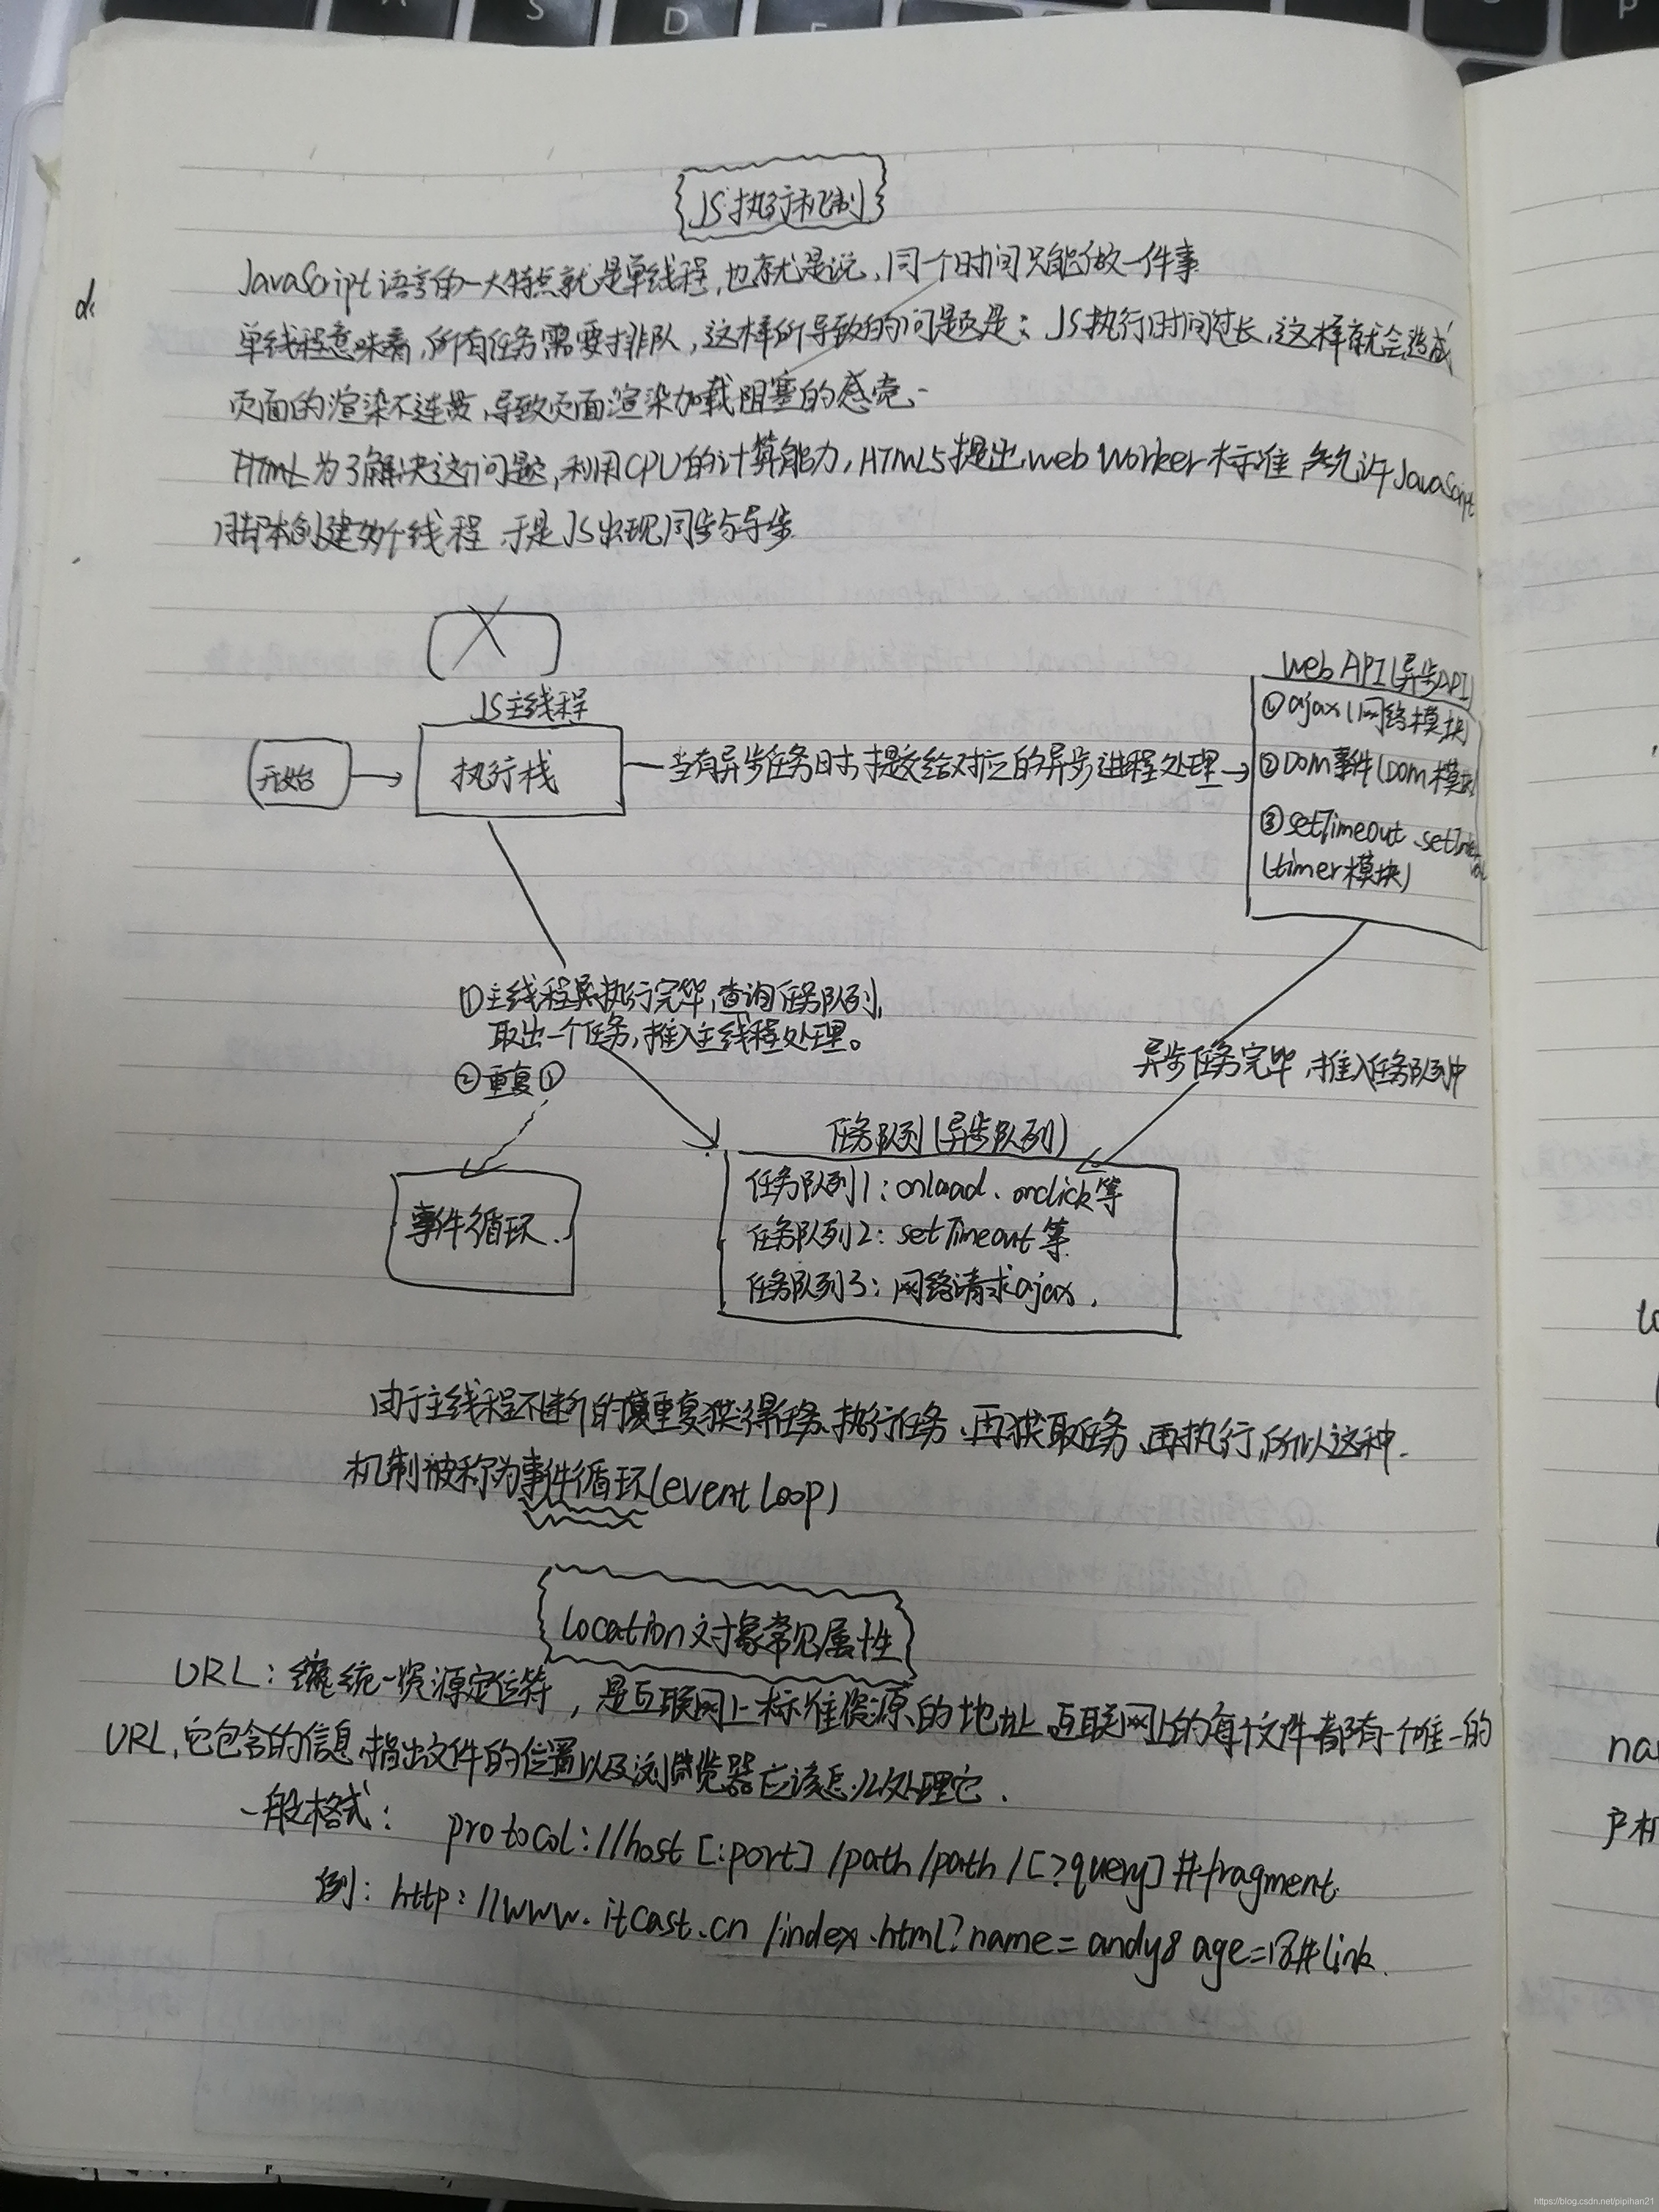 JS执行机制
JavaScript语言的一大特点就是单线程,也就是说,同个时间只能做一件事
单线程意味着,所有任务需要排队,这样所导致的问题是:JS执行时间过长,这样就会造成
页面的渲染不连贯,导致页面渲染加载阻塞的感觉、
为了解决这个问题,利用CPU的计算能力,HTML5提出web Worker标准 允许JavaScript
脚本创建多个线程 于是JS出现同步与异步
JS主线程
开始
执行栈
当有异步任务时 提交给对应的异步进程处理
Web API(异步API)
①ajax(网络模块)
②DOM事件(DOM模块
③setTimeout、setInterval
(timer模块)
①主线程执行完毕,查询任务队列,
取出一个任务,推入主线程处理。
②重复①
异步任务完毕,推入任务队列中
事件循环.
任务队列(异步队列)
任务队列1:onload、onclick等
任务队列2:setTimeout等
任务队列3:网络请求ajax.
由于主线程不断的重复获得任务、执行任务、再获取任务、再执行,所以这种
机制被称为事件循环(event Loop)
Location对象常见属性
URL:统一资源定位符,是互联网上标准资源的地址 互联网上的每个文件都有一个唯一的
URL,它包含的信息指出文件的位置以及浏览器应该怎么处理它.
一般格式: protocol://host[:port]/path/path/[?query]#fragment
例:http://www.itcast.cn/index.html?name=andy&age=18#link
na
户机
A S D
https://blog.csdn.net/pipihan21